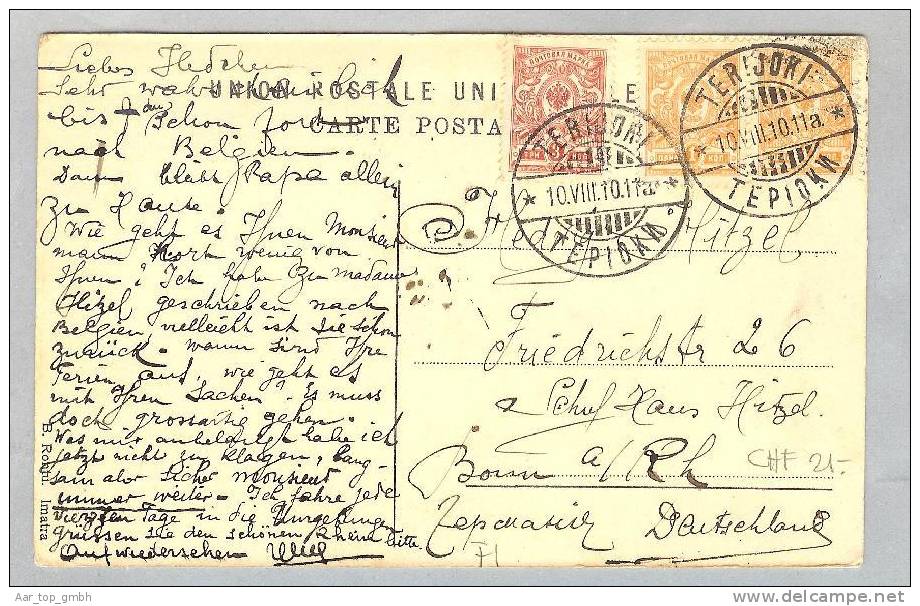 Liebes Hedchen
Sehr wahrscheinlich
bis den Schon fort
nach Belgien.
Dann bleibt Papa allein
zu Hause.
Wie geht es Ihnen Monsieur
mann Hört wenig von
Ihnen? Ich habe zu madame
Hitzel geschrieben nach
Belgien, vielleicht ist sie schon
zurück. wann sind Ihre
Ferien aus, wie geht es
mit Ihren Sachen? Es muss
doch grossartig gehen.
Was mir anbelangt habe ich
jetzt nicht zu klagen, lang-
sam aber sicher Monsieur
immer weiter. Ich fahre jede
vierzehn Tage in die Umgebungen
grüssen sie den schönen Rhein bitte
Auf wiedersehen
UNION POSTALE UNI LE
CARTE POSTA
ПОЧТОВАЯ МАРКА
ПОЧТОВАЯ МАРКА
КОП
TERIJOKI
10.VIII.10.11a.
ТЕРІОКИ
TERIJOKI
10.VIII.10.11a.
ТЕРІОКИ
Hitzel
Friedrichstr 26
Schuh Haus Hitzel.
Bonn a/Rh
Германия Deutschland
CHF 21-
B. Rohtu Imatra
Aar_top_gmbh
delcampe.net